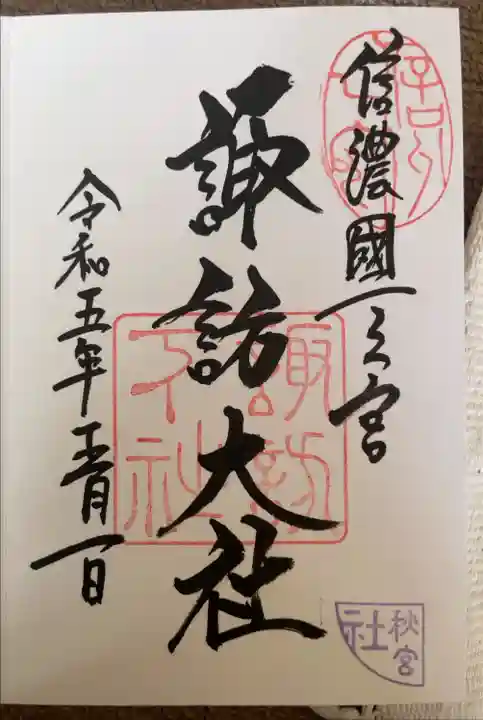 信濃國一之宮
諏訪大社
令和五年五月一日
諏訪大社
秋宮
社